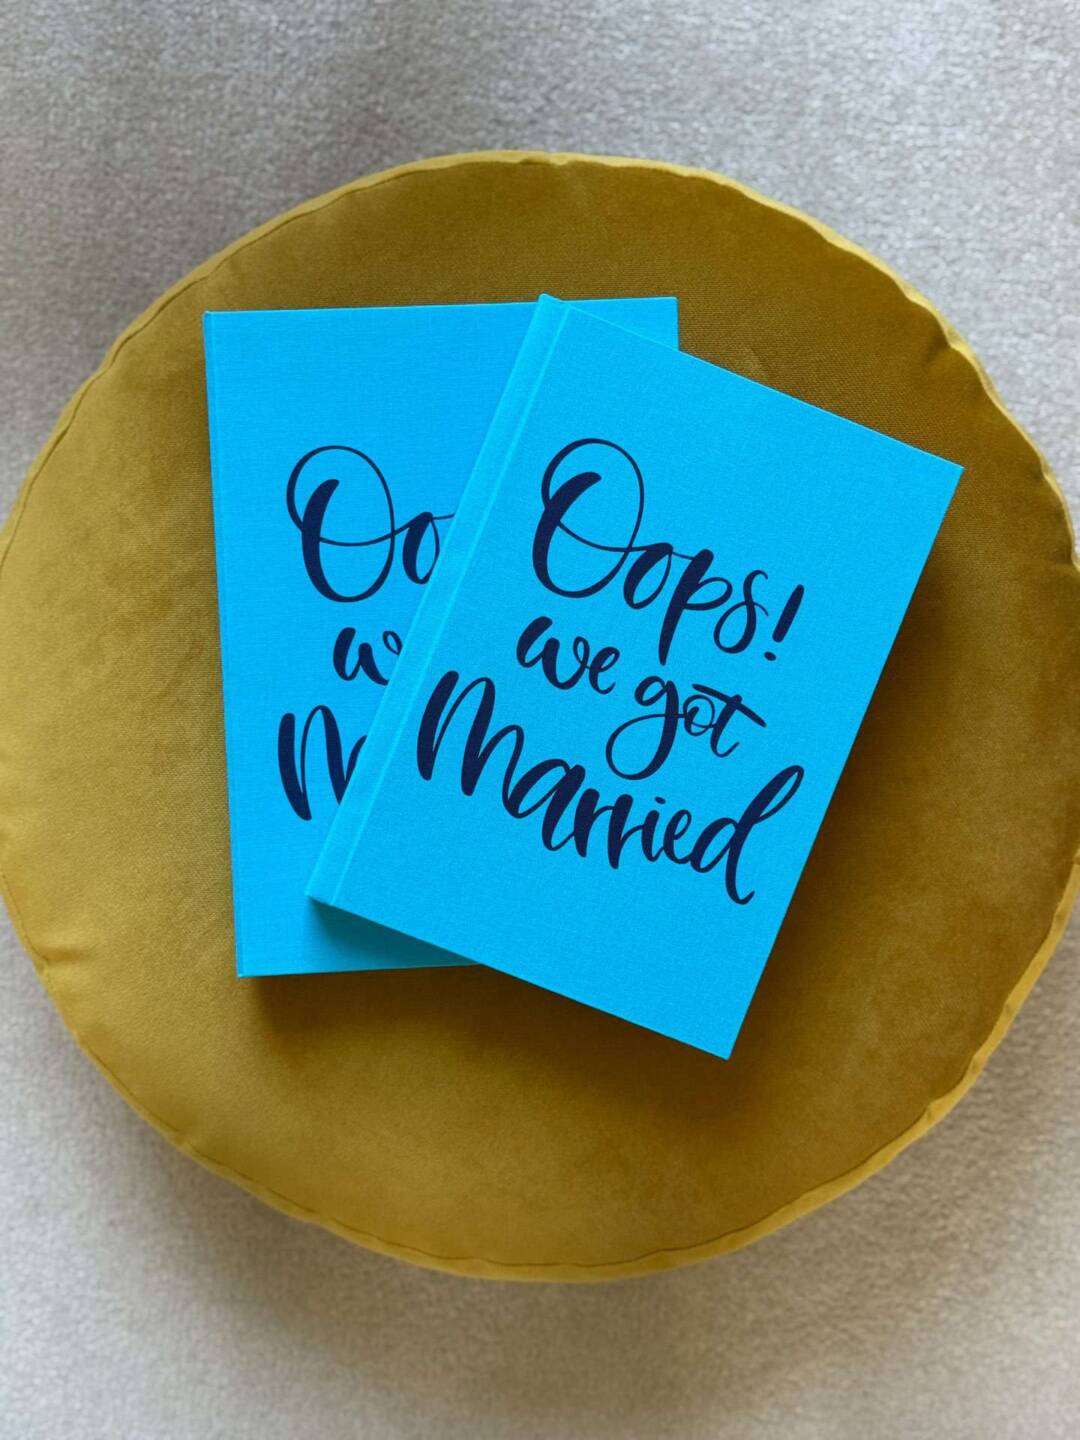 Oops!
we got
Married
Oo
w
M